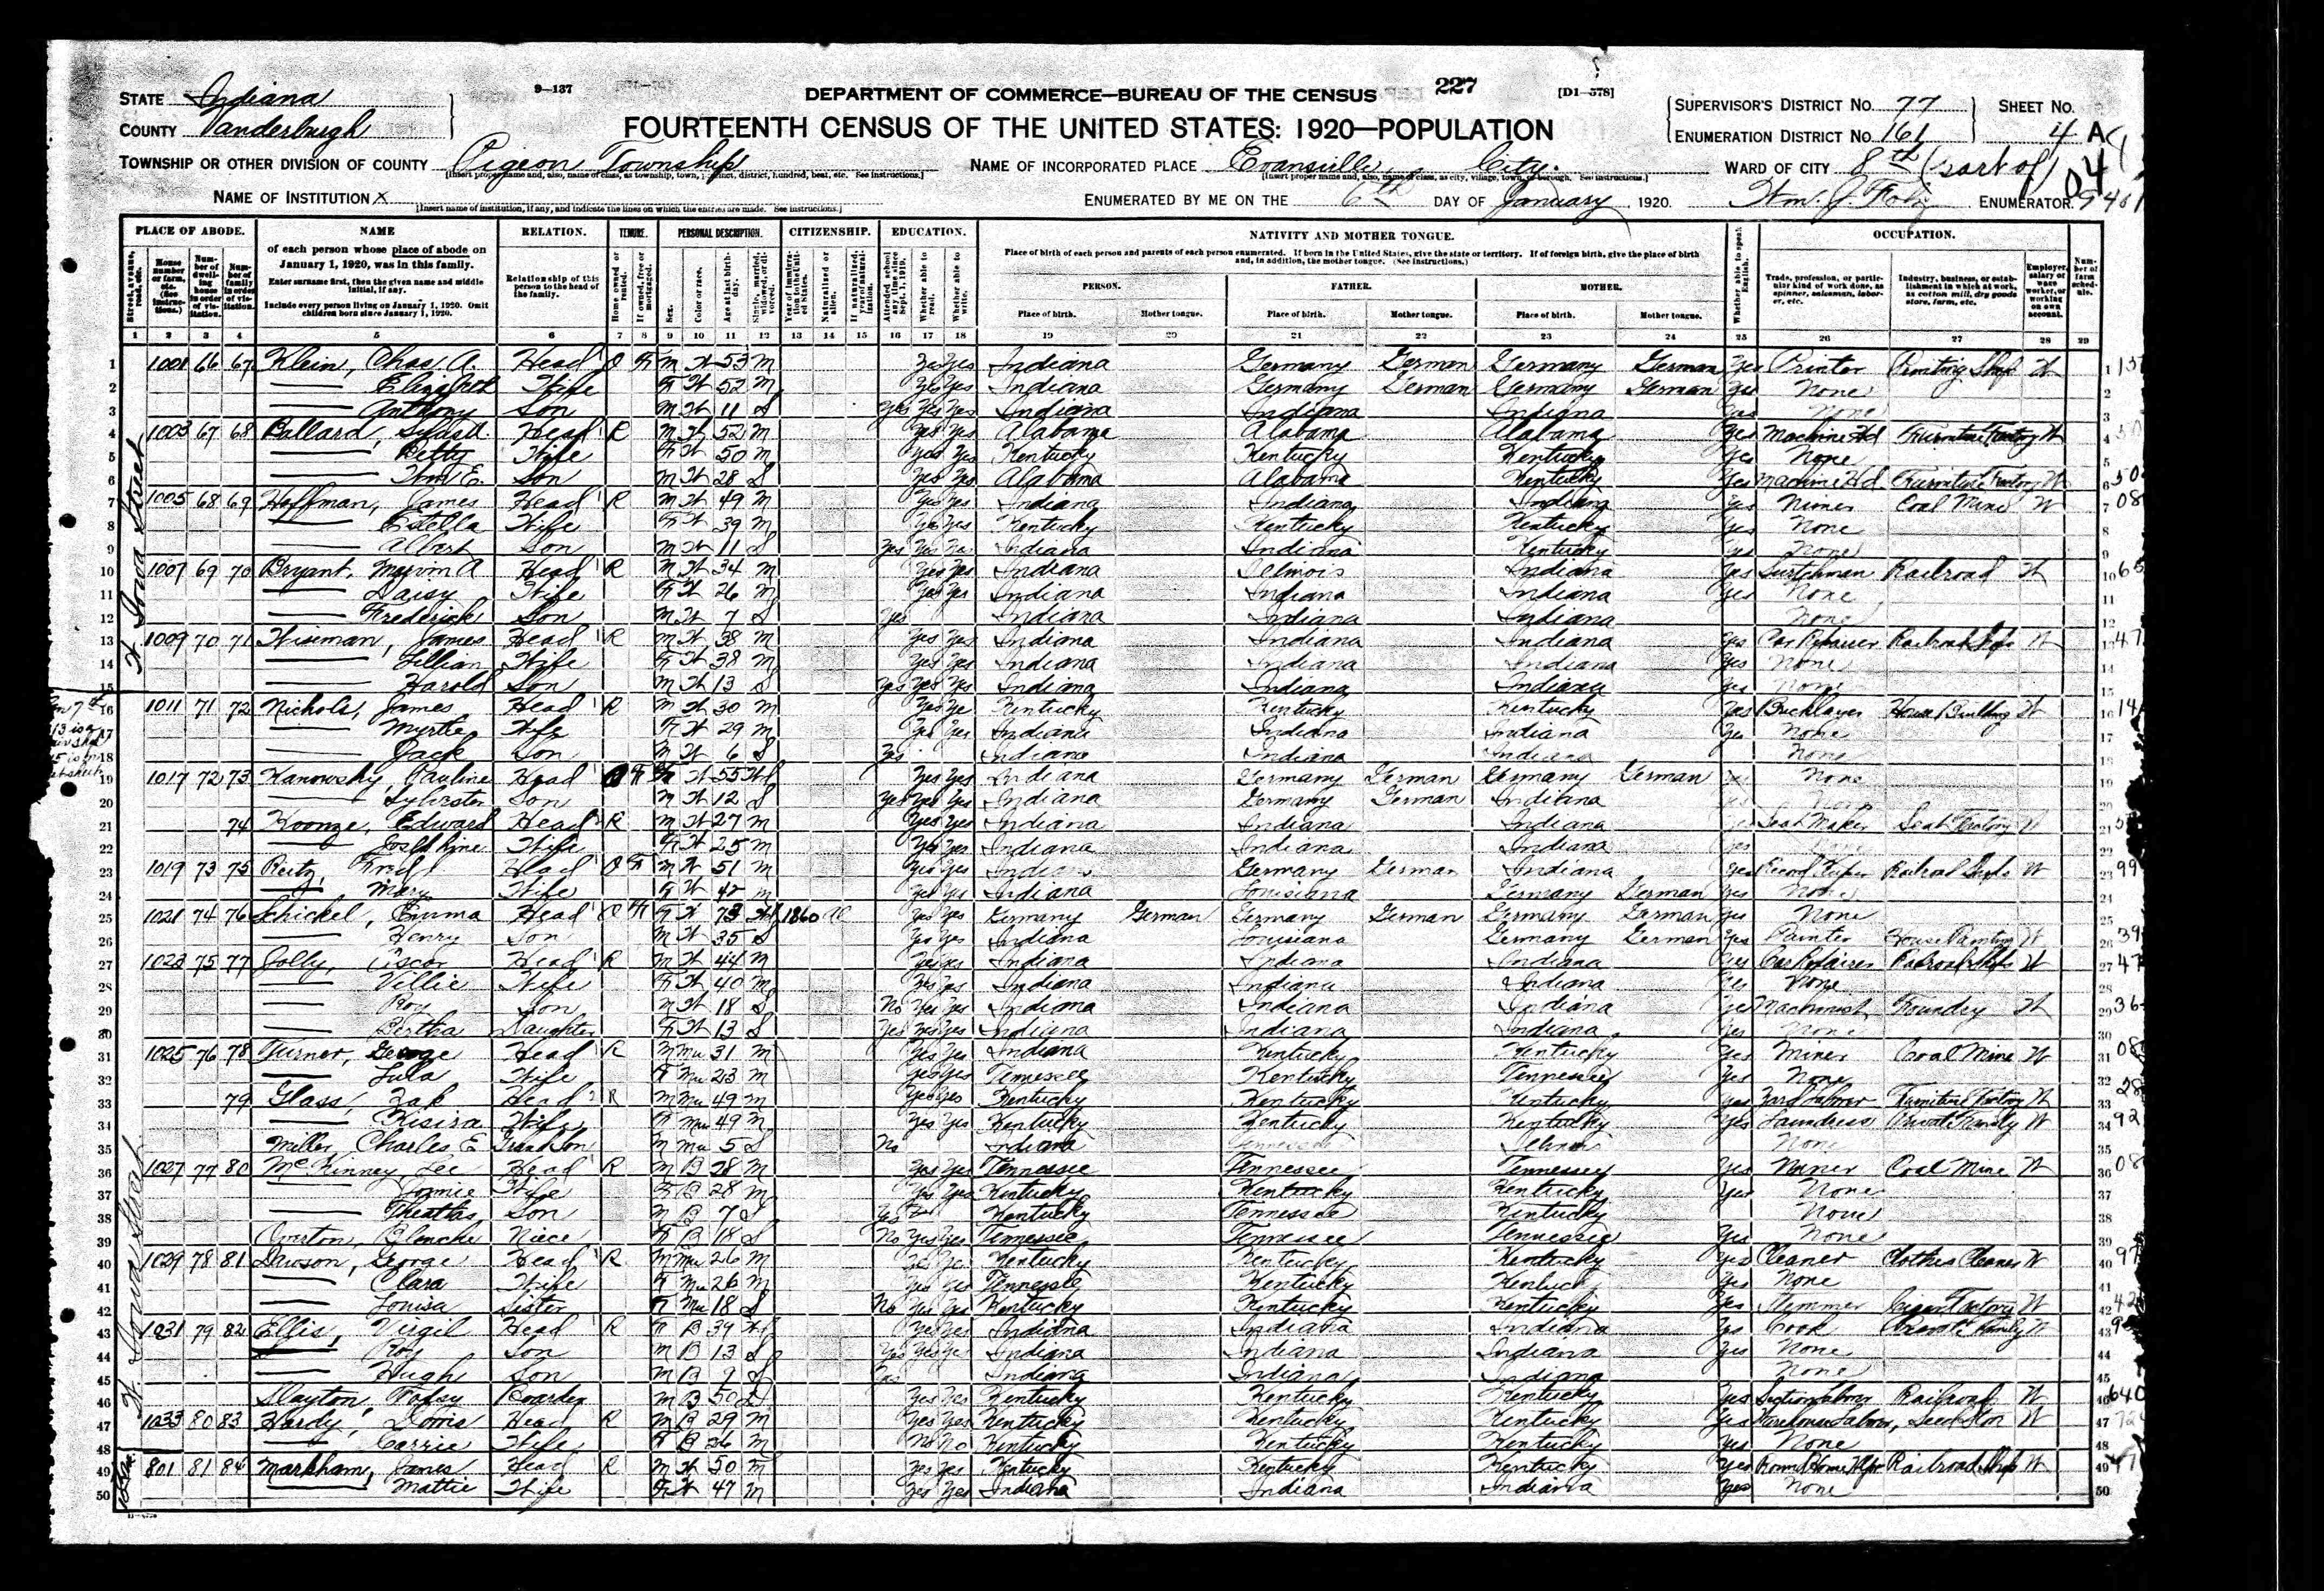 9—137
227
[D1—578]
DEPARTMENT OF COMMERCE—BUREAU OF THE CENSUS
FOURTEENTH CENSUS OF THE UNITED STATES: 1920—POPULATION
STATE Indiana
COUNTY Vanderburgh
SUPERVISOR'S DISTRICT No. 77
ENUMERATION DISTRICT No. 161
SHEET No. 4 A
TOWNSHIP OR OTHER DIVISION OF COUNTY Pigeon Township
NAME OF INCORPORATED PLACE Evansville City.
WARD OF CITY 8th (part of)
NAME OF INSTITUTION X
[Insert name of institution, if any, and indicate the lines on which the entries are made. See instructions.]
ENUMERATED BY ME ON THE 6th DAY OF January, 1920. Wm. J. ENUMERATOR.
PLACE OF ABODE. NAME RELATION. TENURE. PERSONAL DESCRIPTION. CITIZENSHIP. EDUCATION. NATIVITY AND MOTHER TONGUE. OCCUPATION.
of each person whose place of abode on January 1, 1920, was in this family.
Enter surname first, then the given name and middle initial, if any.
Include every person living on January 1, 1920. Omit children born since January 1, 1920.
Relationship of this person to the head of the family.
Place of birth of each person and parents of each person enumerated. If born in the United States, give the state or territory. If of foreign birth, give the place of birth and, in addition, the mother tongue. (See instructions.)
PERSON. FATHER. MOTHER.
Place of birth. Mother tongue. Place of birth. Mother tongue. Place of birth. Mother tongue.
1 2 3 4 5 6 7 8 9 10 11 12 13 14 15 16 17 18 19 20 21 22 23 24 25 26 27 28 29
W Iowa Street
1 1001 66 67 Klein, Chas. A. Head O F M W 53 M Yes Yes Indiana Germany German Germany German Yes Printer Printing Shop W
2 Elizabeth Wife F W 52 M Yes Yes Indiana Germany German Germany German Yes None
3 Anthony Son M W 11 S Yes Yes Yes Indiana Indiana Indiana Yes None
4 1003 67 68 Ballard, Head R M W 52 M Yes Yes Alabama Alabama Alabama Yes Machine Hd Furniture Factory W
5 Betty Wife F W 50 M Yes Yes Kentucky Kentucky Kentucky Yes None
6 Wm E. Son M W 28 S Yes Yes Alabama Alabama Kentucky Yes Machine Hd Furniture Factory W
7 1005 68 69 Hoffman, James Head R M W 49 M Yes Yes Indiana Indiana Indiana Yes Miner Coal Mine W
8 Estella Wife F W 39 M Yes Yes Kentucky Kentucky Kentucky Yes None
9 Albert Son M W 11 S Yes Yes Yes Indiana Indiana Kentucky Yes None
10 1007 69 70 Bryant, Marvin A Head R M W 34 M Yes Yes Indiana Illinois Indiana Yes Switchman Railroad W
11 Daisy Wife F W 26 M Yes Yes Indiana Indiana Indiana Yes None
12 Frederick Son M W 7 S Yes Indiana Indiana Indiana None
13 1009 70 71 Wisman, James Head R M W 38 M Yes Yes Indiana Indiana Indiana Yes Car Repairer Railroad Shops W
14 Lillian Wife F W 38 M Yes Yes Indiana Indiana Indiana Yes None
15 Harold Son M W 13 S Yes Yes Yes Indiana Indiana Indiana Yes None
16 1011 71 72 Nichols, James Head R M W 30 M Yes Ye Kentucky Kentucky Kentucky Yes Bricklayer House Building W
17 Myrtle Wife F W 29 M Yes Yes Indiana Indiana Indiana Yes None
18 Jack Son M W 6 S Yes Indiana Indiana Indiana None
19 1017 72 73 Kanowsky, Pauline Head O F F W 55 Wd Yes Yes Indiana Germany German Germany German None
20 Sylvester Son M W 12 S Yes Yes Yes Indiana Germany German Indiana
21 74 Koonze, Edward Head R M W 27 M Yes Yes Indiana Indiana Indiana Seat Maker Seat Factory W
22 Josephine Wife F W 25 M Yes Yes Indiana Indiana Indiana
23 1019 73 75 Reitz, Fred Head O F M W 51 M Yes Yes Indiana Germany German Indiana Yes Record Keeper Railroad Shops W
24 Mary Wife F W 42 M Yes Yes Indiana Louisiana Germany German Yes None
25 1021 74 76 Schickel, Emma Head O F F W 73 Wd 1860 Yes Yes Germany German Germany German Germany German Yes None
26 Henry Son M W 35 S Yes Yes Indiana Louisiana Germany German Yes Painter House Painting W
27 1023 75 77 Jolly, Oscar Head R M W 44 M Yes Yes Indiana Indiana Indiana Yes Car Repairer Railroad Shops W
28 Villie Wife F W 40 M Yes Yes Indiana Indiana Indiana Yes None
29 Roy Son M W 18 S No Yes Yes Indiana Indiana Indiana Yes Machinist Foundry W
30 Bertha Daughter F W 13 S Yes Yes Yes Indiana Indiana Indiana Yes None
31 1025 76 78 Turner, George Head R M Mu 31 M Yes Yes Indiana Kentucky Kentucky Yes Miner Coal Mine W
32 Lula Wife F Mu 23 M Yes Yes Tennessee Kentucky Tennessee Yes None
33 79 Glass, Zak Head R M Mu 49 M Yes Yes Kentucky Kentucky Kentucky Yes Yard Laborer Furniture Factory W
34 Kisira Wife F Mu 49 M Yes Yes Kentucky Kentucky Kentucky Yes Laundress Private Family W
35 Miller, Charles E Grandson M Mu 5 S No Indiana Tennessee Illinois None
36 1027 77 80 McKinney, Lee Head R M B 28 M Yes Yes Tennessee Tennessee Tennessee Yes Miner Coal Mine W
37 Wife F B 28 M Yes Yes Kentucky Kentucky Kentucky Yes None
38 Theattas Son M B 7 S Yes Kentucky Tennessee Kentucky None
39 Overton, Blanche Niece F B 18 S No Yes Yes Tennessee Tennessee Tennessee Yes None
40 1029 78 81 Dawson, George Head R M Mu 26 M Yes Yes Kentucky Kentucky Kentucky Yes Cleaner Clothes Cleaner W
41 Clara Wife F Mu 26 M Yes Yes Tennessee Kentucky Kentucky Yes None
42 Louisa Sister F Mu 18 S No Yes Yes Kentucky Kentucky Kentucky Yes Stemmer Cigar Factory W
43 1031 79 82 Ellis, Virgil Head R F B 39 Wd Yes Yes Indiana Indiana Indiana Yes Cook Private Family W
44 Roy Son M B 13 S Yes Yes Ye Indiana Indiana Indiana Yes None
45 Hugh Son M B 9 S Yes Indiana Indiana Indiana None
46 Slayton, Topsy Boarder M B 50 D Yes Yes Kentucky Kentucky Kentucky Yes Section Laborer Railroad W
47 1033 80 83 Hardy, Head R M B 29 M Yes Yes Kentucky Kentucky Kentucky Yes Warehouse Labor, Seed Stor W
48 Carrie Wife F B 26 M No No Kentucky Kentucky Kentucky Yes None
49 801 81 84 Markham, James Head R M W 50 M Yes Yes Kentucky Kentucky Kentucky Yes Railroad Shop W
50 Mattie Wife F W 47 M Yes Yes Indiana Indiana Indiana Yes None